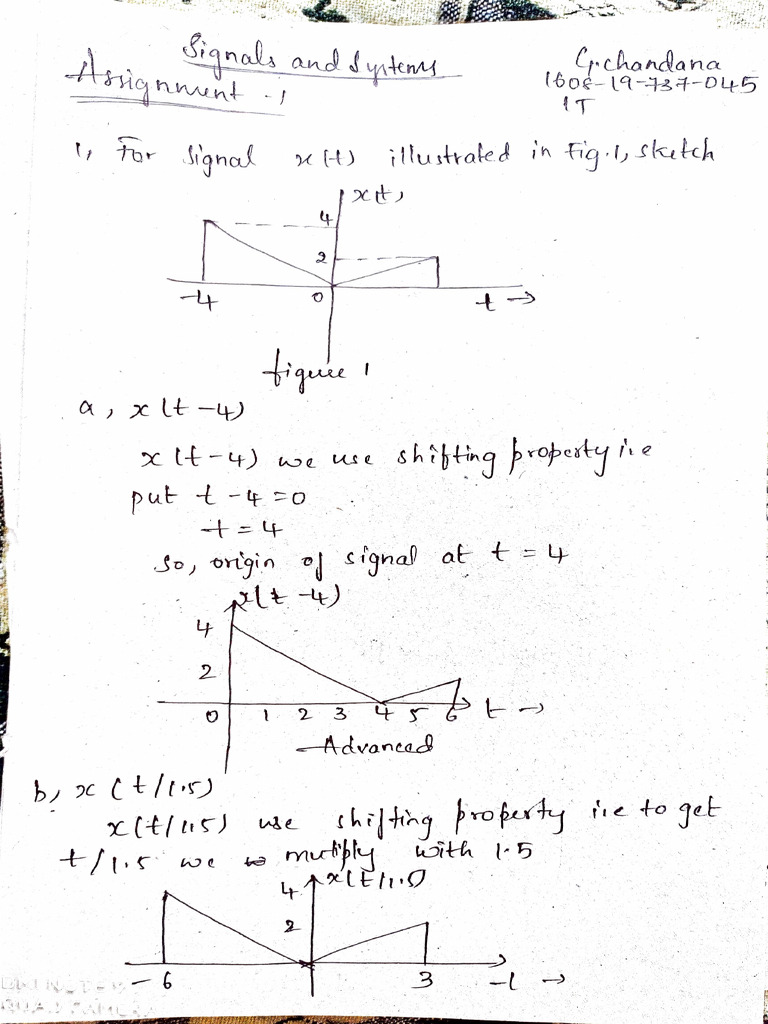 Signals and Systems
Assignment - 1
G.chandana
1608-19-737-045
IT
1, For signal x(t) illustrated in Fig.1, sketch
x(t)
4
2
-4 0 t →
figure 1
a, x(t-4)
x(t-4) we use shifting property i.e
put t-4=0
t=4
So, origin of signal at t=4
x(t-4)
4
2
0 1 2 3 4 5 6 t →
Advanced
b, x(t/1.5)
x(t/1.5) use shifting property i.e to get
t/1.5 we mutiply with 1.5
4 x(t/1.5)
2
-6 3 -t →